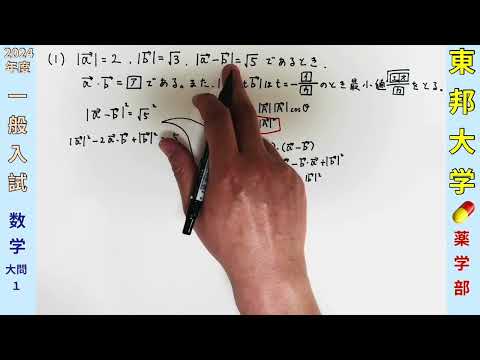 2024
年度
一般入試
数学
大問
1
東邦大学
薬学部
(1) |a⃗| = 2, |b⃗| = √3, |a⃗ - b⃗| = √5 であるとき,
a⃗・b⃗ = ア である。また, | t b⃗| は t = - イ/ウ のとき最小値 エオ/カ をとる。
|a⃗ - b⃗|² = √5²
|a⃗|² - 2a⃗・b⃗ + |b⃗|²
|A⃗||A⃗| cos θ
|A⃗|²
・(a⃗ - b⃗)
- b⃗・a⃗ + |b⃗|²
|b⃗|²